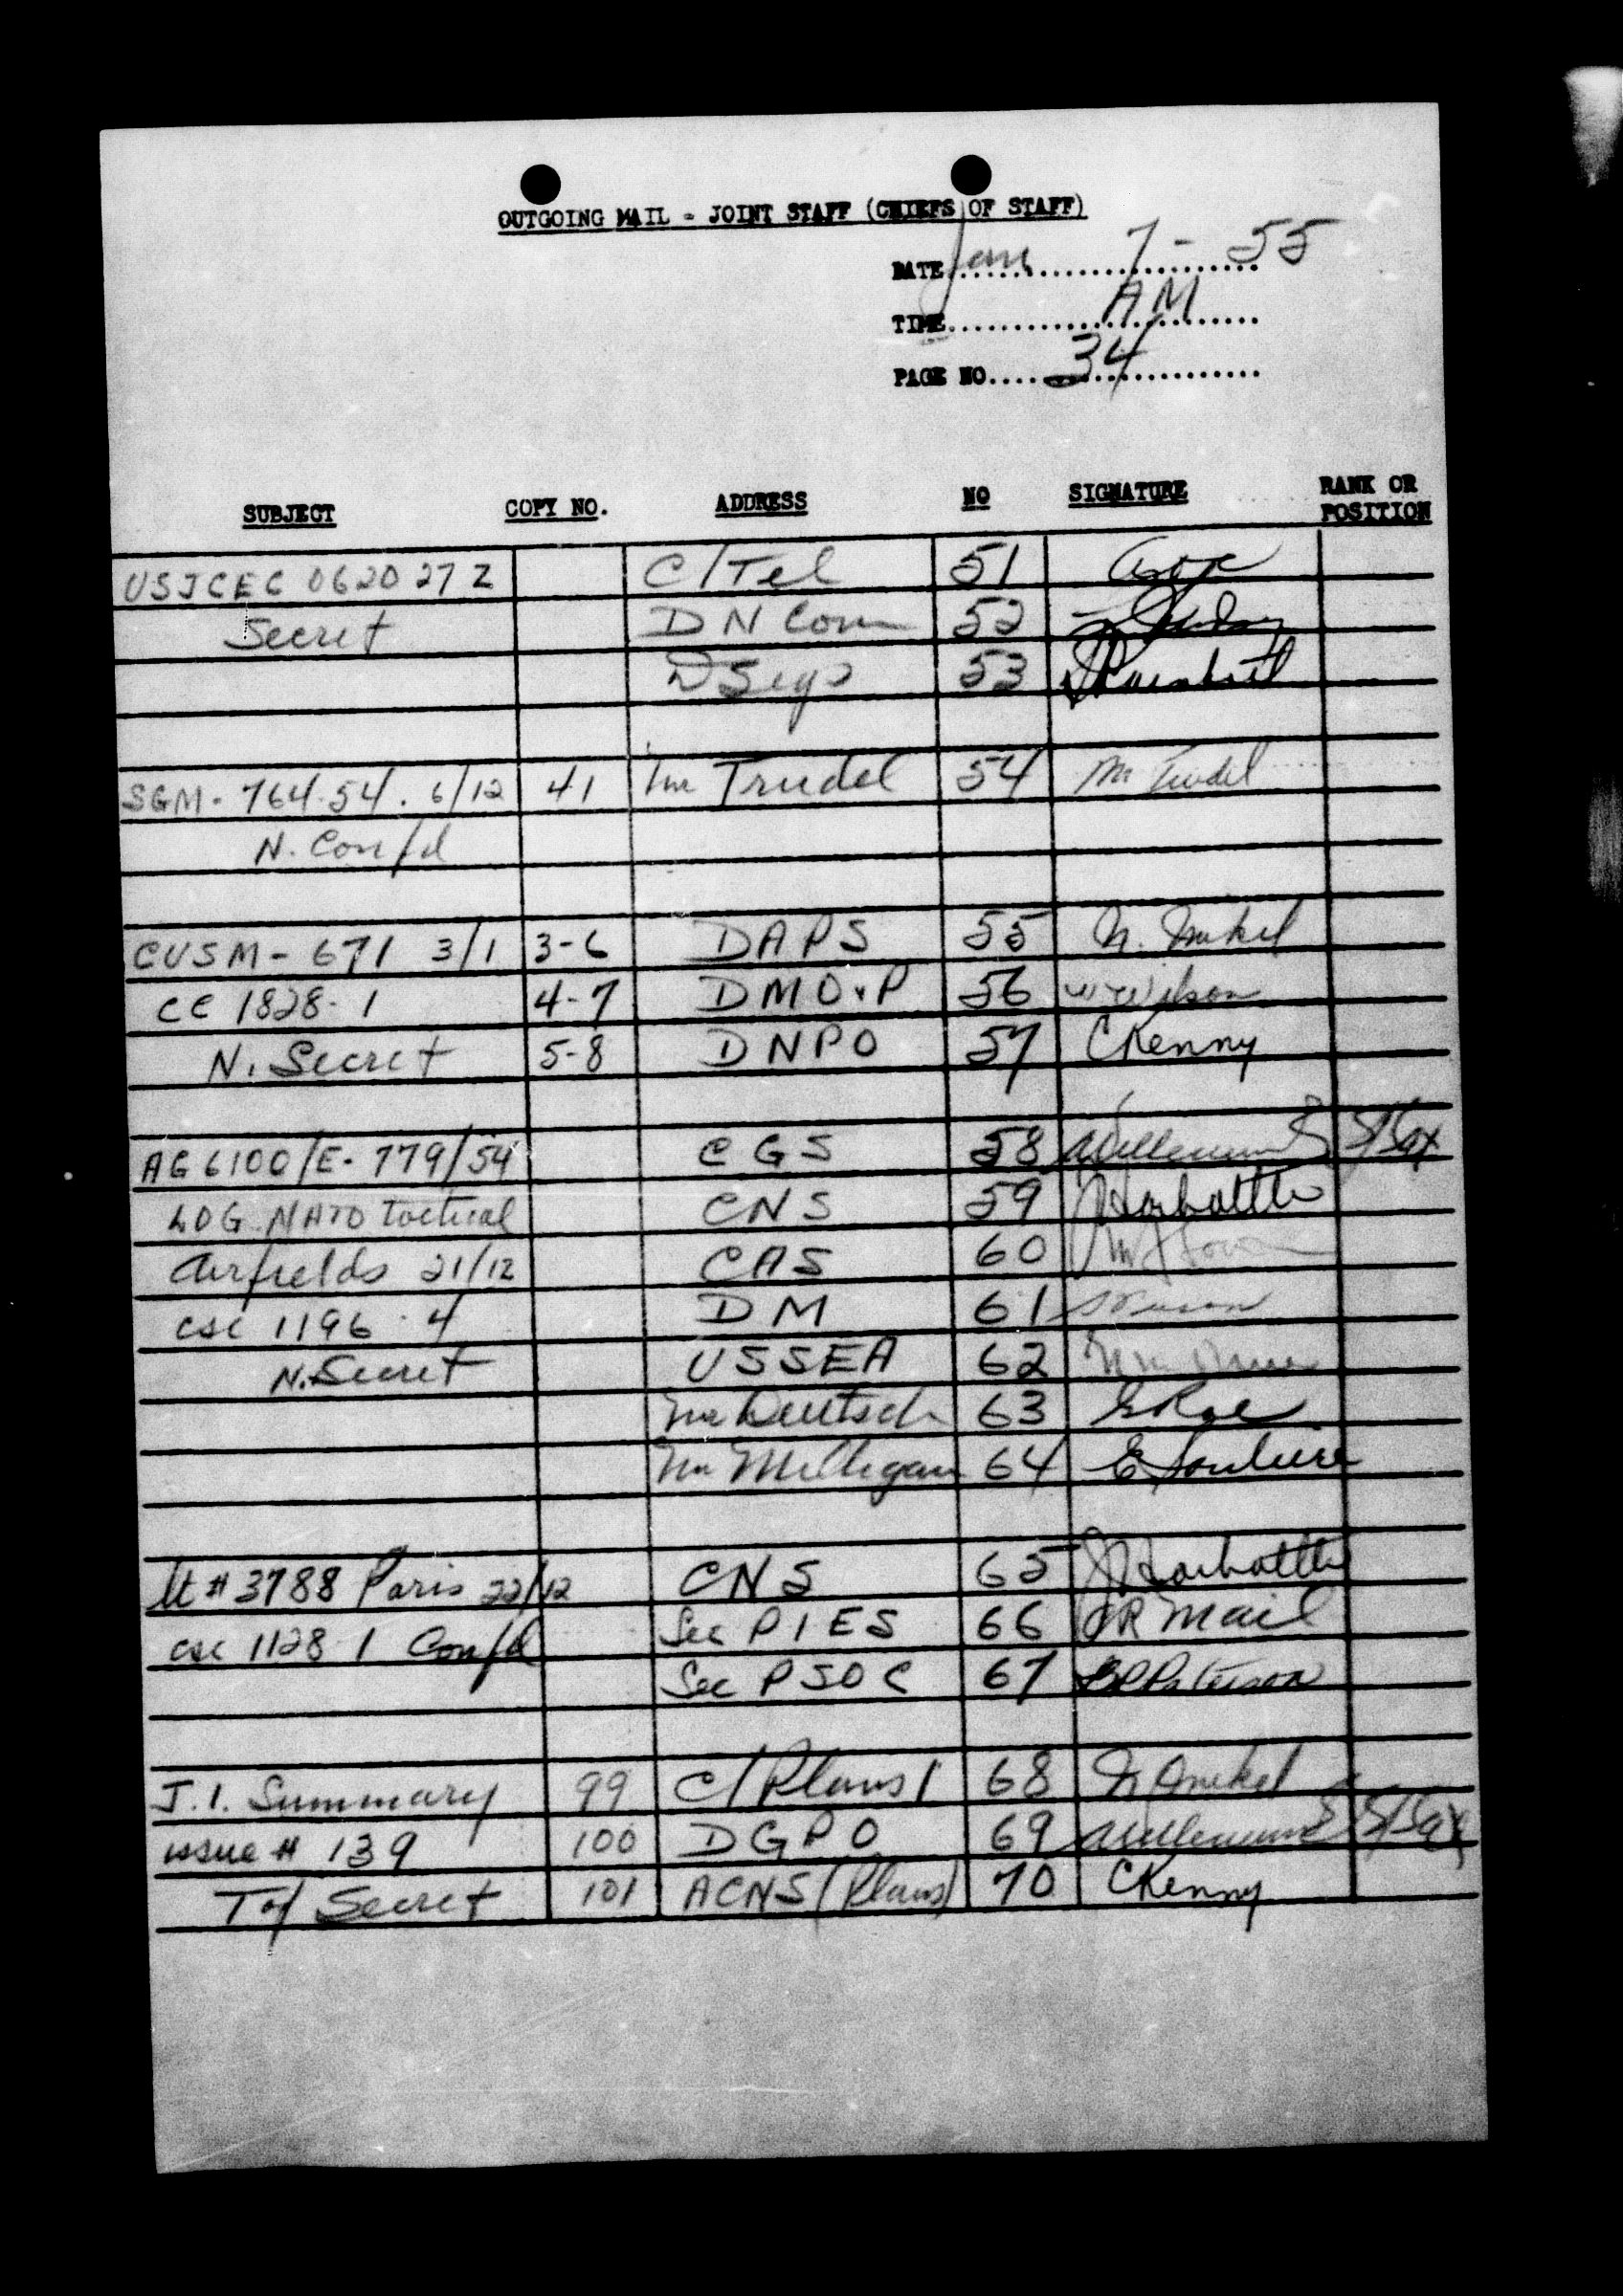 OUTGOING MAIL - JOINT STAFF (CHIEFS OF STAFF)
DATE Jan 7 - 55
TIME AM
PAGE NO. 34
SUBJECT COPY NO. ADDRESS NO SIGNATURE RANK OR POSITION
USJCEC 062027Z C/Tel 51
Secret DN Com 52
D Sigs 53
SGM - 764-54. 6/12 41 Mr Trudel 54 M Trudel
N. Confd
CUSM - 671 3/1 3-6 DAPS 55
CC 1828-1 4-7 DMO&P 56 W Wilson
N. Secret 5-8 DNPO 57 CKenny
AG 6100/E-779/54 CGS 58 S/Sgt
LOG NATO Tactical CNS 59 Harbottle
Airfields 21/12 CAS 60
csc 1196-4 DM 61
N. Secret USSEA 62
Mr Deutsch 63 E Roe
Mr Milligan 64 E Souliere
lt # 3788 Paris 22/12 CNS 65 Harbottle
csc 1128-1 Confd Sec PIES 66 Mail
Sec PSOC 67 Paterson
J.I. Summary 99 C/Plans 1 68
issue # 139 100 DGPO 69 S/Sgt
Top Secret 101 ACNS (Plans) 70 CKenny